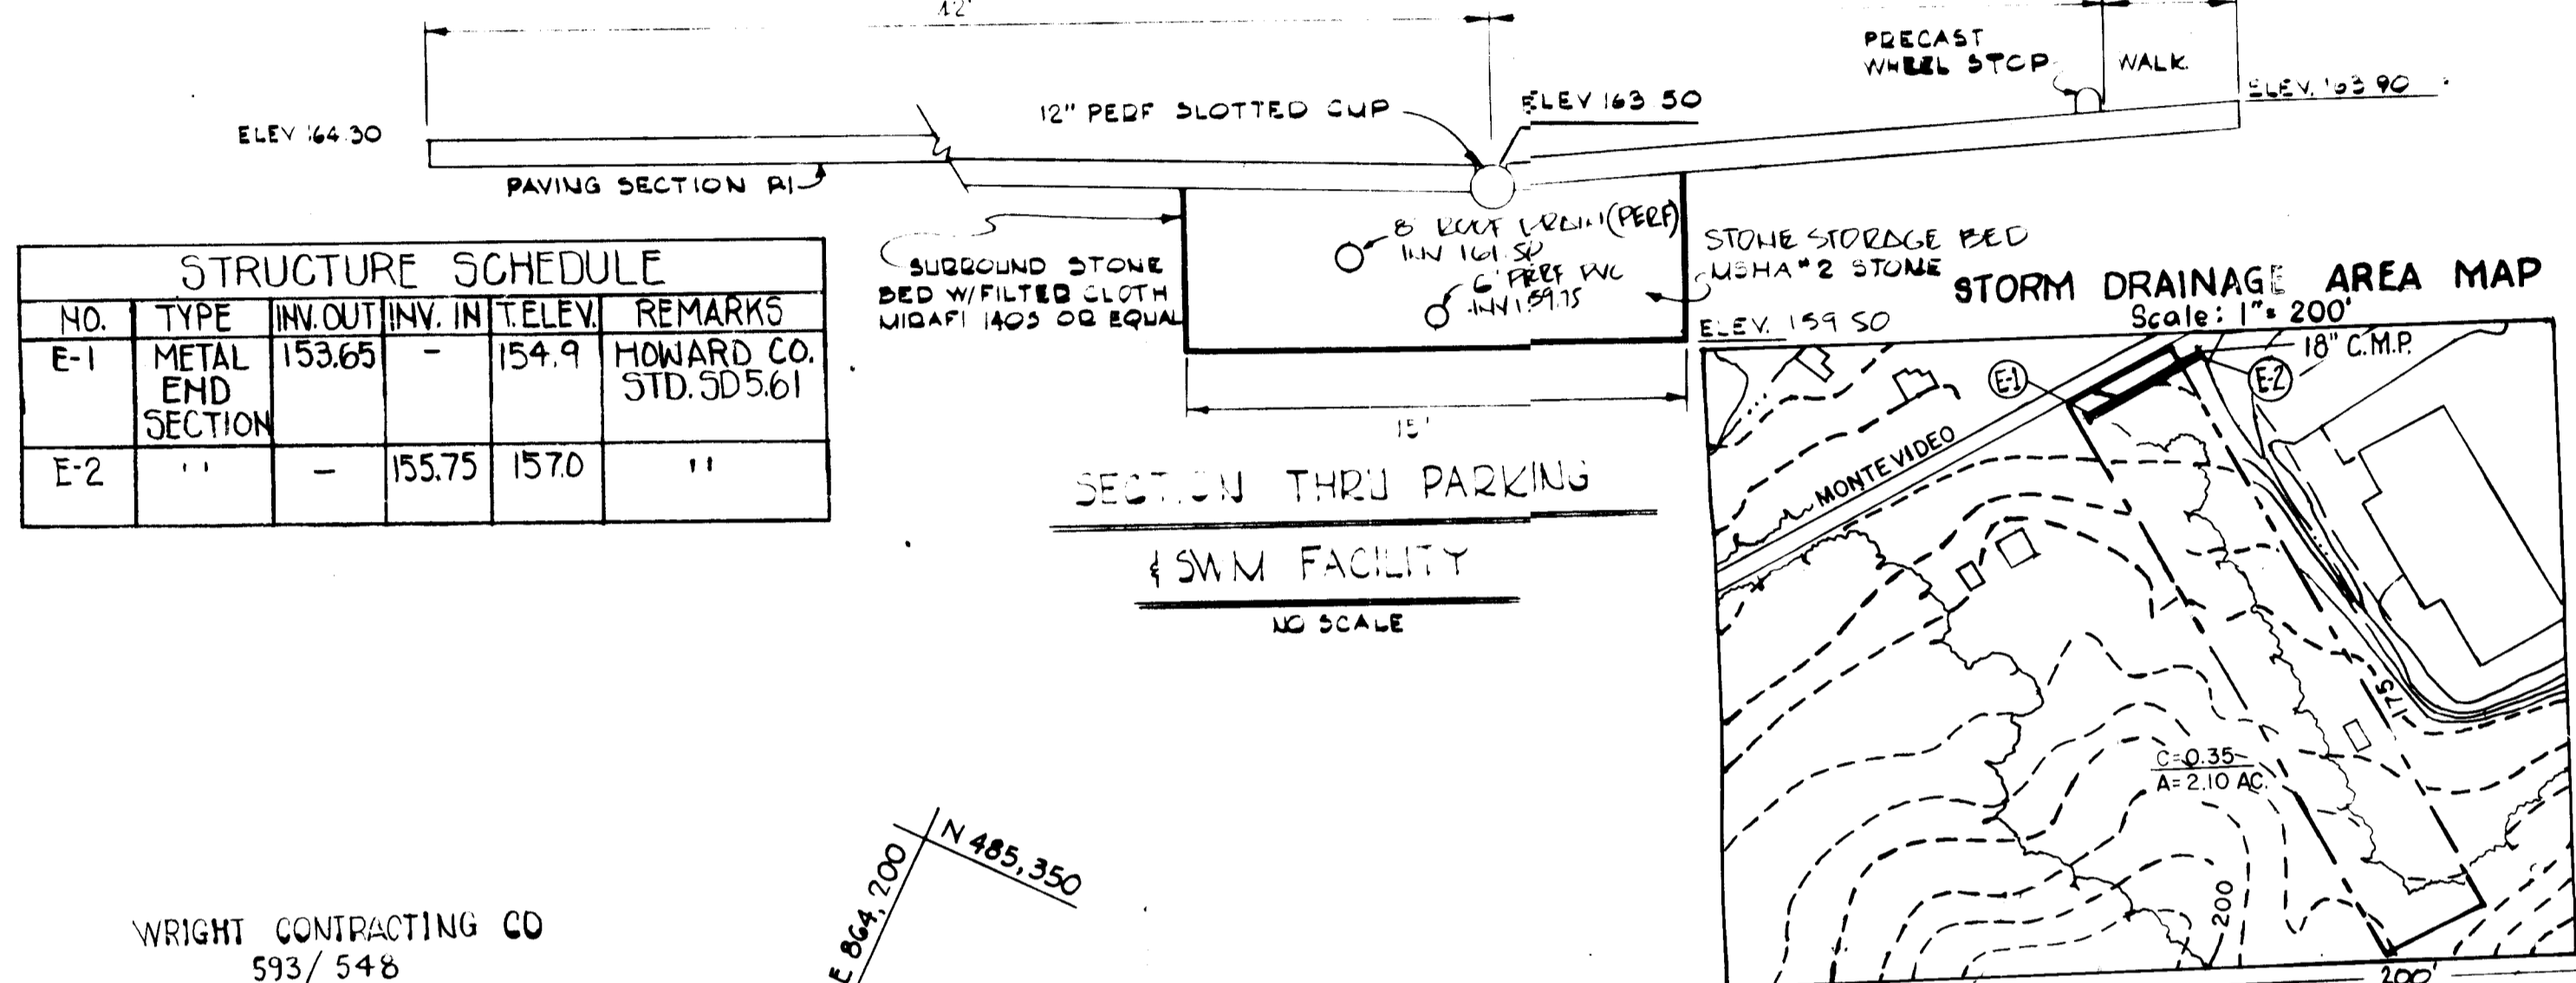 42'
PRECAST
WHEEL STOP
WALK
ELEV 164.30
12" PERF SLOTTED CMP
ELEV 163.50
ELEV. 163 90
PAVING SECTION P1
SURROUND STONE
BED W/FILTER CLOTH
MIRAFI 140S OR EQUAL
8" ROOF DRAIN (PERF)
INV 161.50
6" PERF PVC
INV 159.75
STONE STORAGE BED
MSHA #2 STONE
ELEV. 159 50
15'
SECTION THRU PARKING
& SWM FACILITY
NO SCALE
STRUCTURE SCHEDULE
NO. TYPE INV. OUT INV. IN T.ELEV. REMARKS
E-1 METAL END SECTION 153.65 - 154.9 HOWARD CO. STD. SD5.61
E-2 " - 155.75 157.0 "
STORM DRAINAGE AREA MAP
Scale: 1" = 200'
18" C.M.P.
E-1
E-2
MONTEVIDEO
175
C=0.35
A=2.10 AC.
200
200'
N 485,350
E 864,200
WRIGHT CONTRACTING CO
593/548